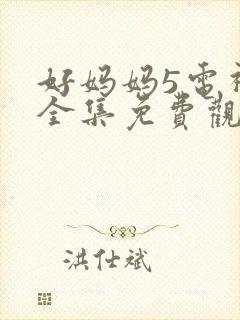 好妈妈5电视
全集免費觀
洪仕斌